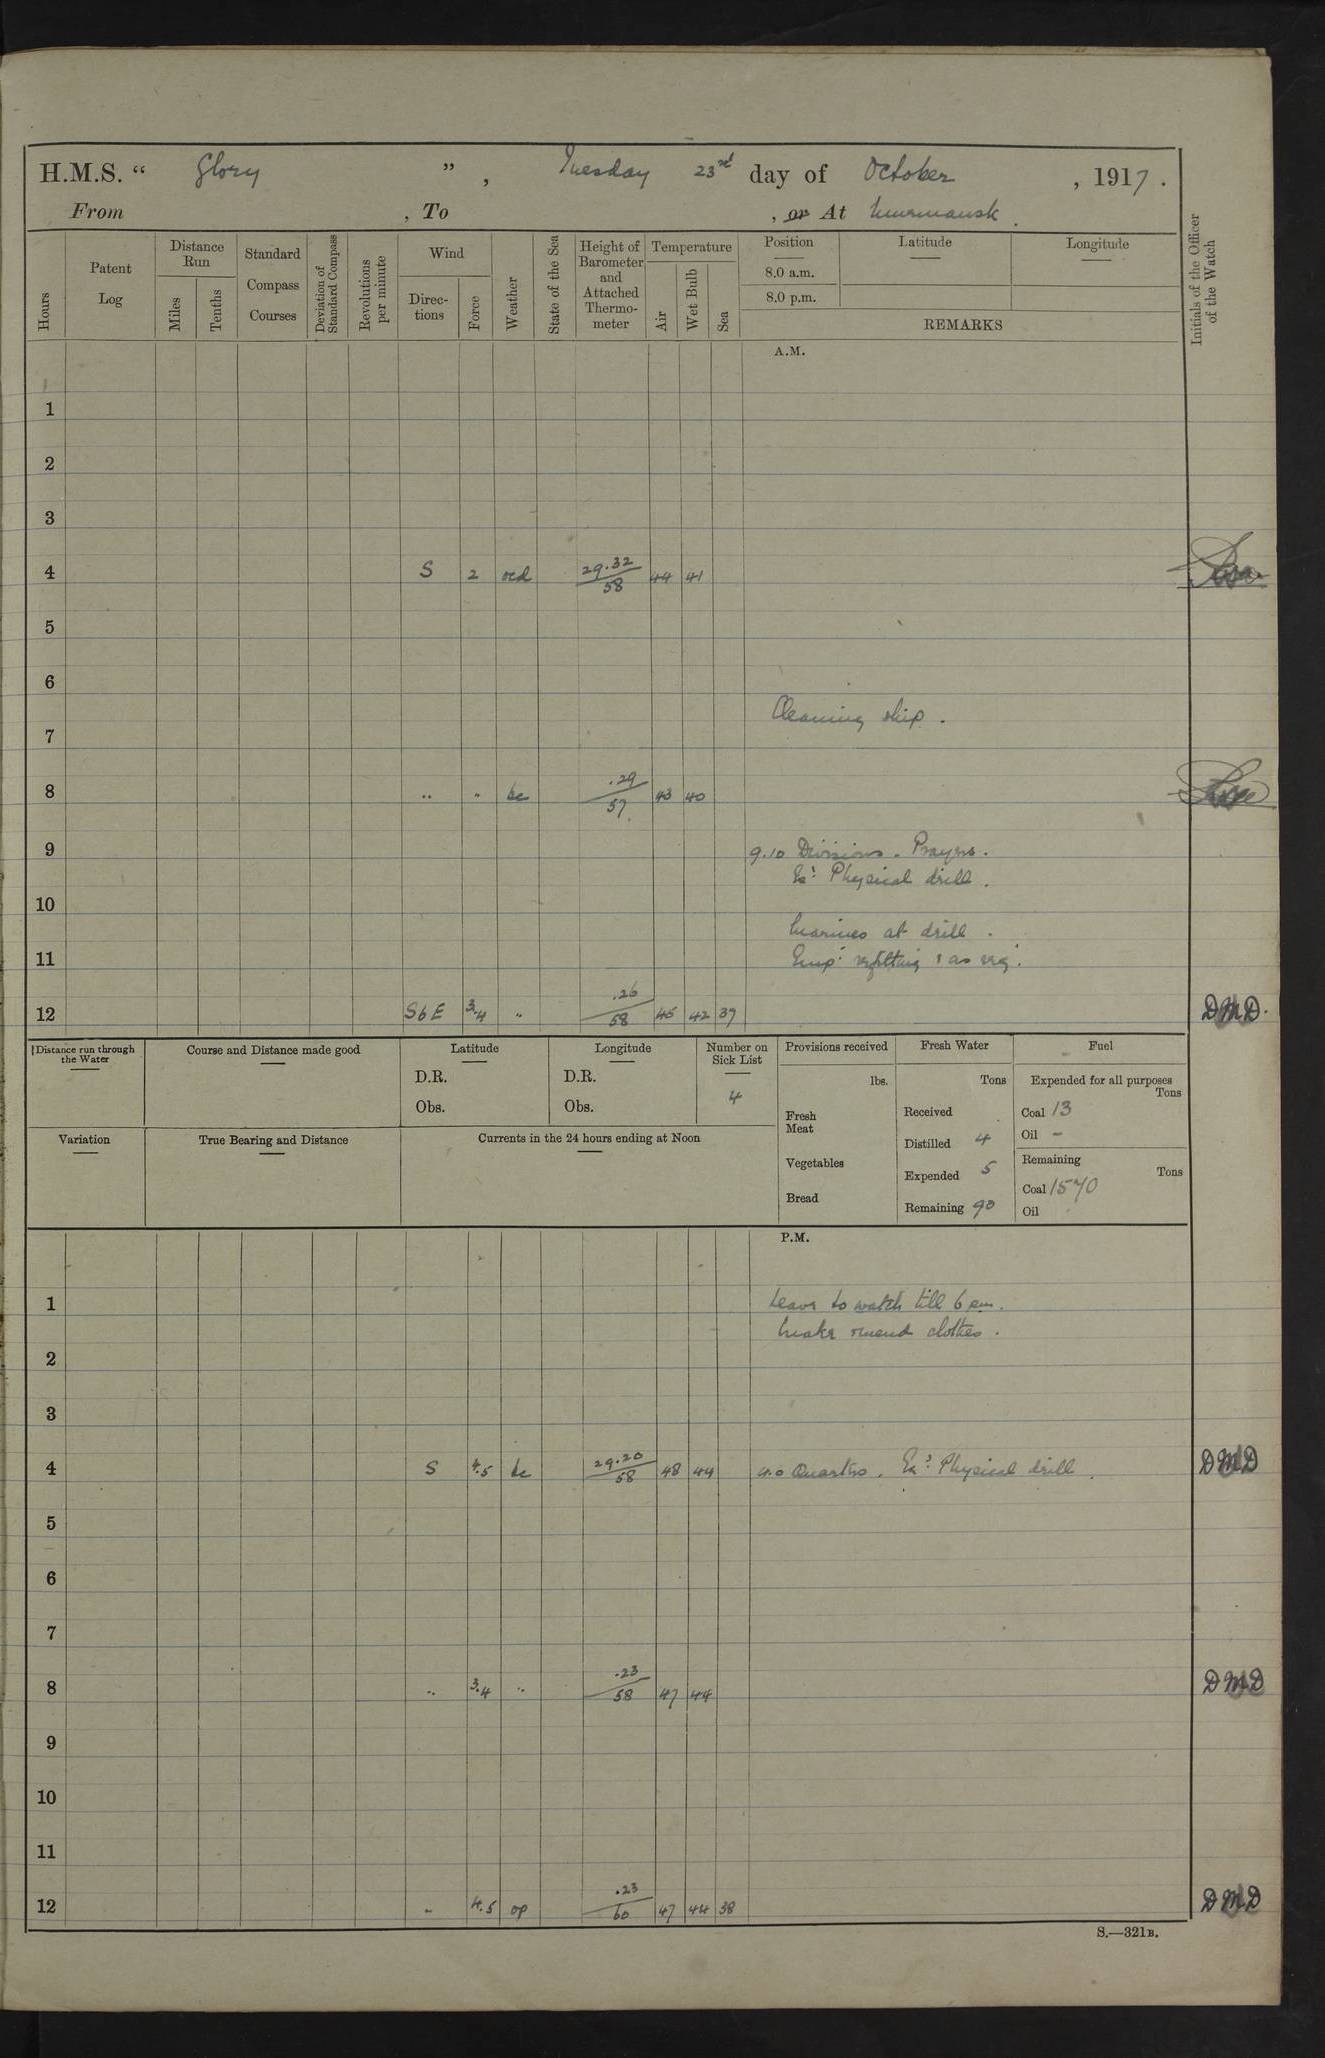 H.M.S. “ Glory ” , Tuesday 23rd day of October , 1917 .
From , To , or At Murmansk .
Hours
Patent Log
Distance Run
Miles
Tenths
Standard Compass Courses
Deviation of Standard Compass
Revolutions per minute
Wind
Direc- tions
Force
Weather
State of the Sea
Height of Barometer and Attached Thermo- meter
Temperature
Air
Wet Bulb
Sea
Position
8.0 a.m.
8.0 p.m.
Latitude
Longitude
REMARKS
Initials of the Officer of the Watch
A.M.
1
2
3
4 S 2 ocd 29.32/58 44 41
5
6
Cleaning ship .
7
8 .. " bc .29/57 43 40
9 9.10 Divisions . Prayers .
Ex: Physical drill .
10
Marines at drill .
11 Emp: refitting & as req:
12 SbE 3.4 " .26/58 45 42 39 DMD.
Distance run through the Water
Course and Distance made good
Latitude
D.R.
Obs.
Longitude
D.R.
Obs.
Number on Sick List
4
Provisions received
lbs.
Fresh Meat
Vegetables
Bread
Fresh Water
Tons
Received
Distilled 4
Expended 5
Remaining 90
Fuel
Expended for all purposes
Tons
Coal 13
Oil –
Remaining
Tons
Coal 1570
Oil
Variation
True Bearing and Distance
Currents in the 24 hours ending at Noon
P.M.
1 Leave to watch till 6 pm.
Make & mend clothes .
2
3
4 S 4.5 bc 29.20/58 48 44 4.0 Quarters . Ex: Physical drill . DMD
5
6
7
8 .. 3.4 " .23/58 47 44 DMD
9
10
11
12 " 4.5 op .23/60 47 44 38 DMD
S.—321B.